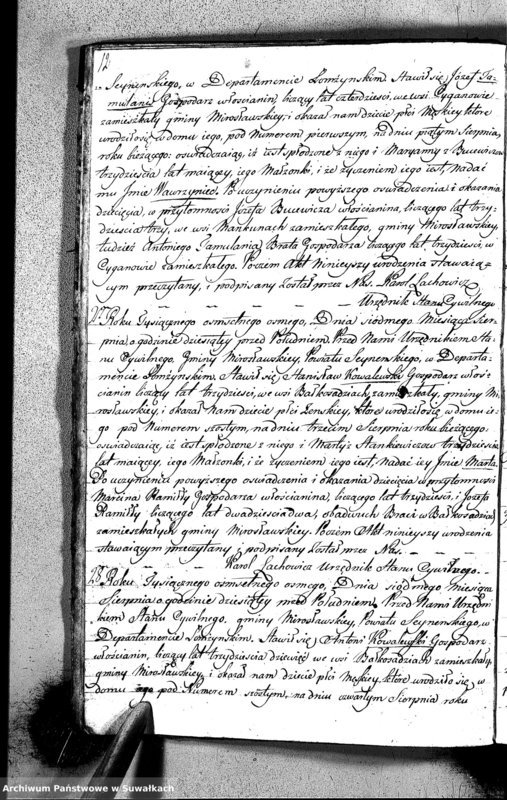 12
Seynenskiego, w Departamencie Łomżynskim Stawił się Józef Ta-
mulanis Gospodarz włoscianin, liczący lat czterdziesci, we wsi Cyganowie
zamieszkały gminy Mirosławskiey, i okazał nam dziecie płci Męskiey które
urodziłosię w domu iego, pod Numerem pierwszym, na dniu piątym Sierpnia,
roku bieżącego: oswiadczaiąc, iż iest spłodzone z niego i Maryanny z
trzydziescia lat maiącey, iego Małżonki, i że życzeniem iego iest, nadać
mu Jmie Wawrzyniec. Po uczynieniu powyższego oswiadczenia i okazania
dziecięcia, w przytomnosci Jozefa włoscianina, liczącego lat trzy-
dziescia trzy, we wsi Mankunach zamieszkałego, gminy Mirosławskiey,
tudzież Antoniego Tamulania Brata Gospodarza liczącego lat trzydziesci, w
Cyganowie zamieszkałego. Poczem Akt Ninieyszy urodzenia stawaiąą-
cym przeczytany, i podpisany został przez Nas. Karol Lachowicz
Urzędnik Stanu Cywilnego
27 Roku Tysiącznego osmsetnego osmego, Dnia siodmego Miesiąca Sier-
pnia, o godzinie dziesiątey przed Południem. Przed Nami Urzędnikiem Sta-
nu Cywilnego, Gminy Mirosławskiey, Powiatu Seynenskiego, w Departa-
mencie Łomżynskim. Stawił się Stanisław Kowalewski Gospodarz włos-
cianin liczący lat trzydziesci, we wsi Bałkosadziach zamieszkały, gminy Mi-
rosławskiey, i okazał Nam dziecie płci Żenskiey, które urodziłosię w domu ie-
go pod Numerem szostym, na dniu trzecim Sierpnia roku bieżącego:
oswiadczaiąc, iż iest spłodzone z niego i Marty z Stankiewiczow trzydziescia
lat maiącey, iego Małżonki, i że życzeniem iego iest, nadać iey Jmie Marta.
Po uczynieniu powyższego oswiadczenia i okazania dziecięcia w przytomnosci
Marcina Gospodarza włoscianina, liczącego lat trzydziesci, i Jozefa
liczącego lat dwadziescia dwa, obudwuch Braci w Bałkosadziach
zamieszkałych gminy Mirosławskiey. Poczem Akt ninieyszy urodzenia
stawaiącym przeczytany, i podpisany został przez Nas.
Karol Lachowicz Urzędnik Stanu Cywilnego.
28 Roku Tysiącznego osmsetnego osmego, Dnia siodmego miesiąca
Sierpnia o godzinie dziesiątey przed Południem, Przed Nami Urzędni-
kiem Stanu Cywilnego, gminy Mirosławskiey, Powiatu Seynenskiego, w
Departamencie Łomżynskim. Stawił się Antoni Kowalewski Gospodarz
włoscianin, liczący lat trzydziescia dziewięć we wsi Bałkosadziach zamieszkały,
gminy Mirosławskiey, i okazał nam dziecie płci Męskiey, które urodziło się w
domu iego pod Numerem szostym, na dniu czwartym Sierpnia roku
Archiwum Państwowe w Suwałkach